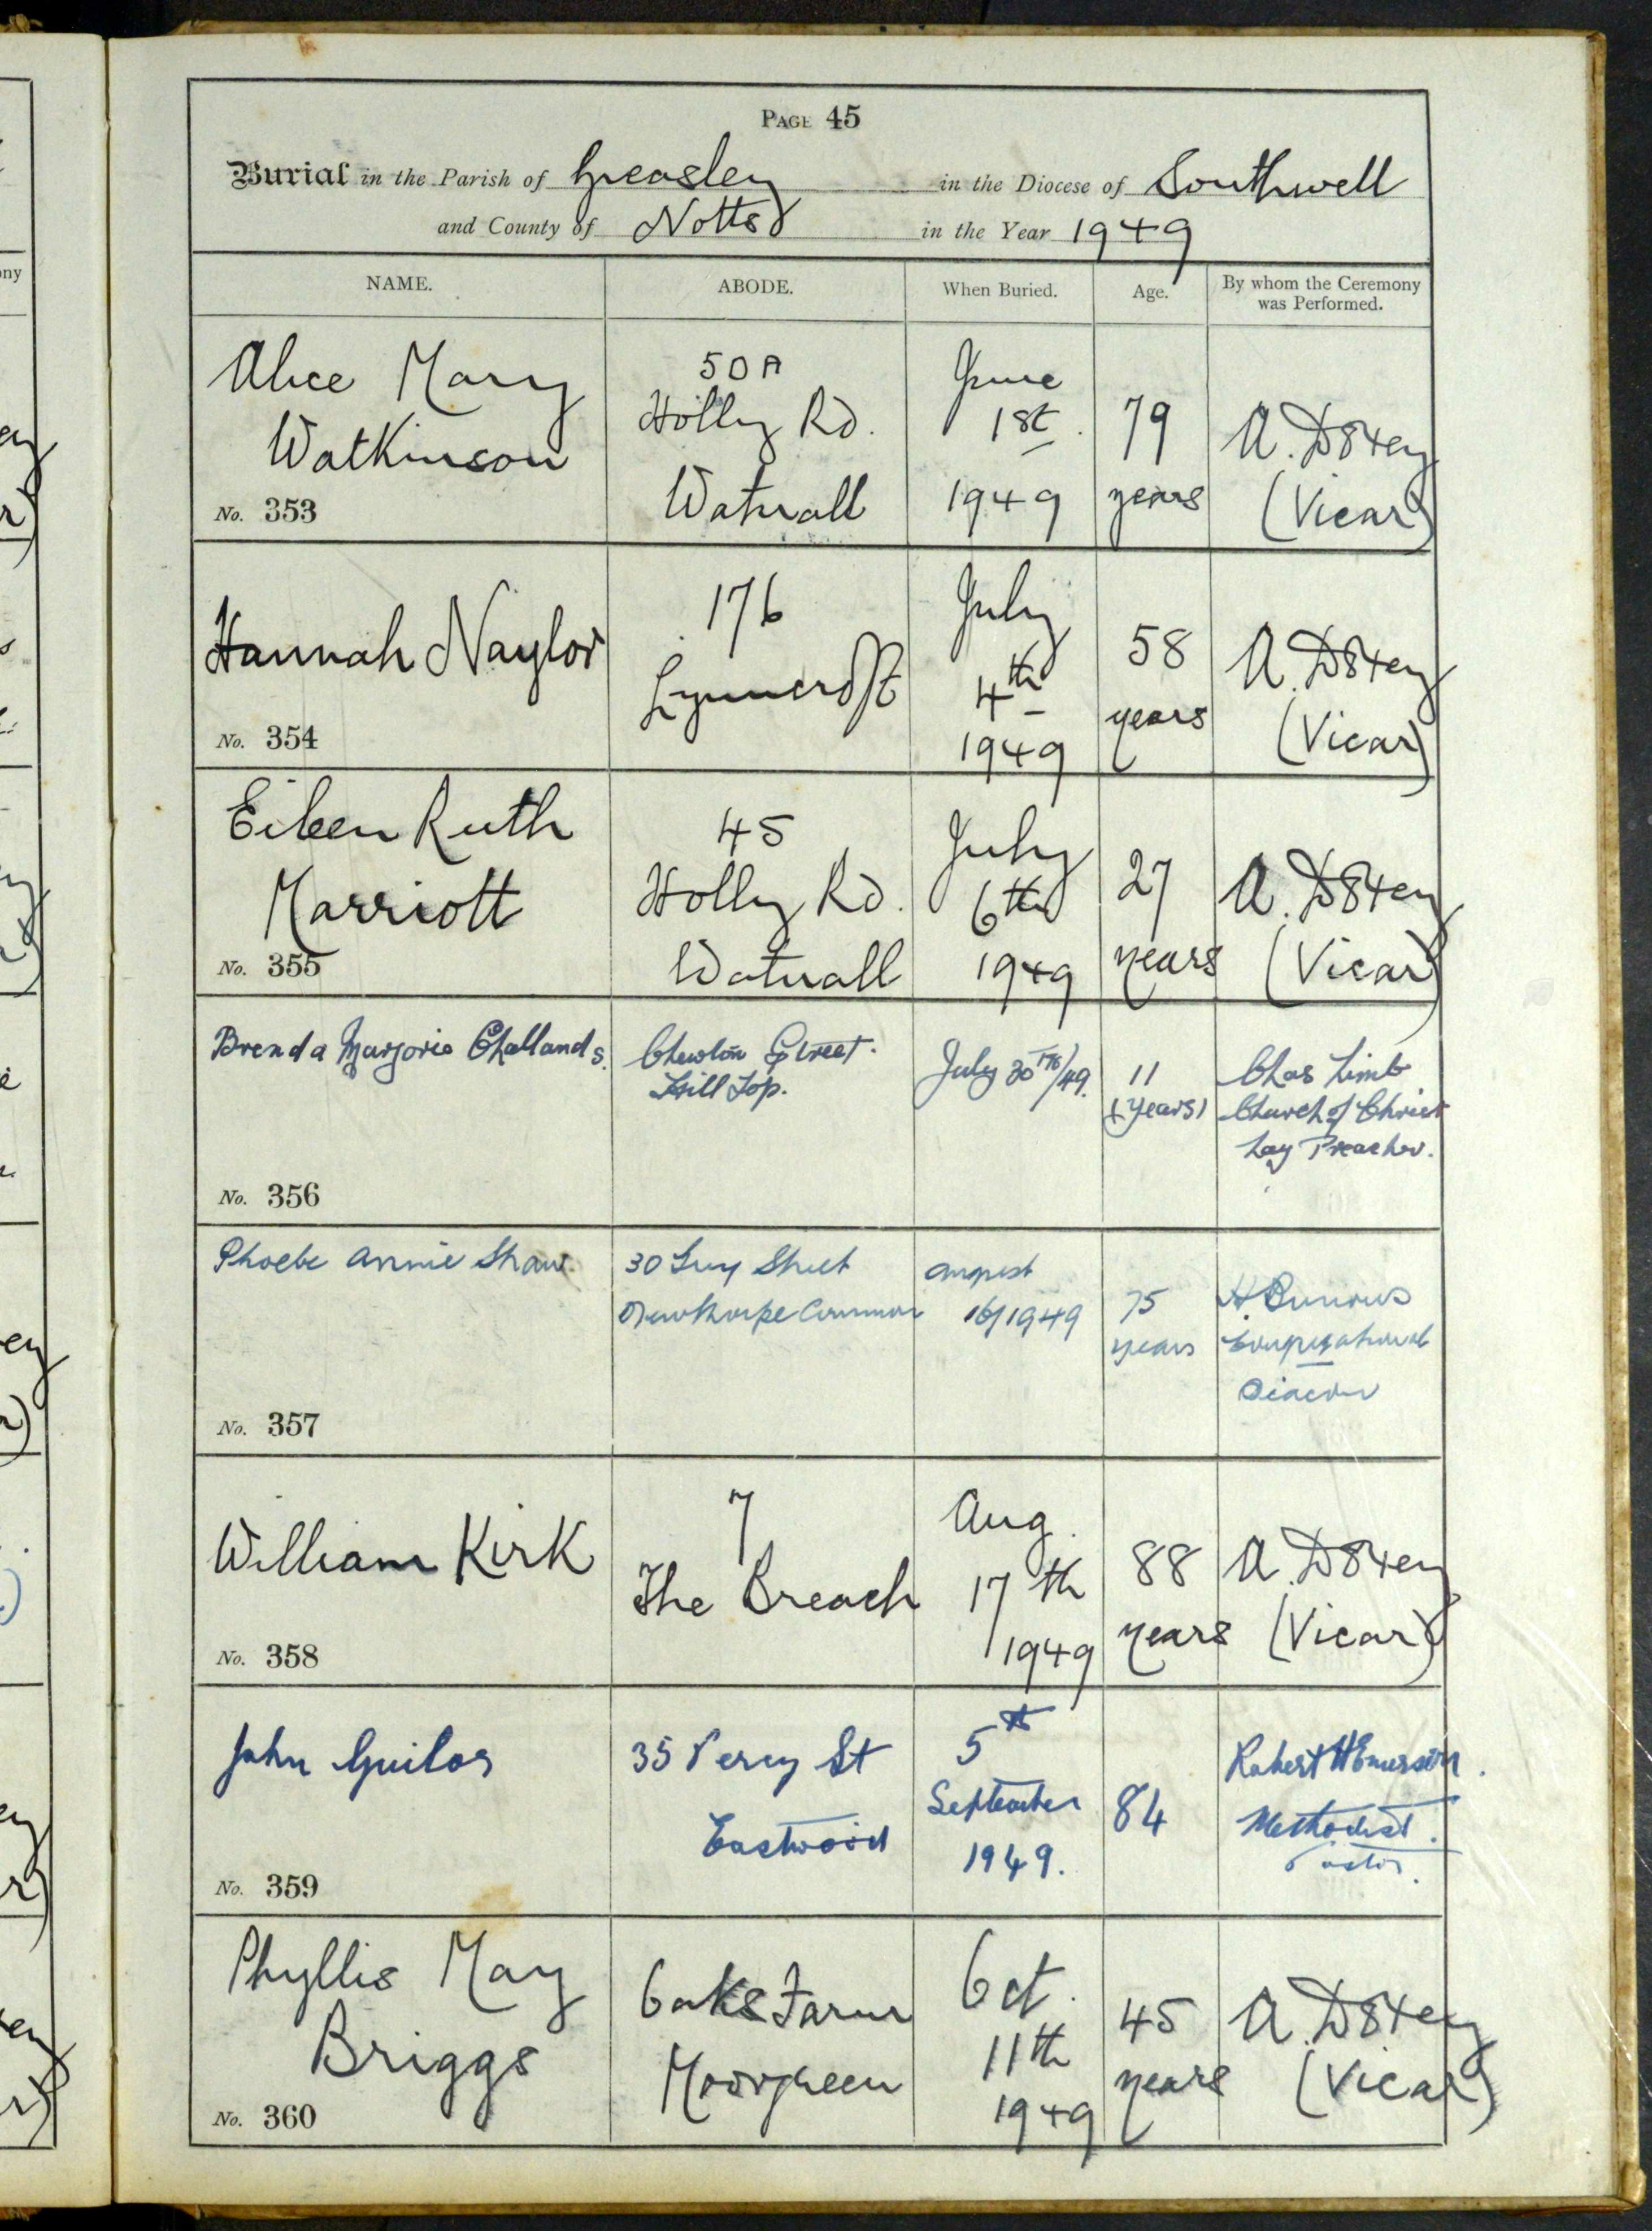 PAGE 45
Burial in the Parish of Greasley in the Diocese of Southwell
and County of Notts in the Year 1949
NAME. ABODE. When Buried. Age. By whom the Ceremony was Performed.
Alice Mary
Watkinson
No. 353
50A
Holly Rd.
Watnall
June
1st.
1949
79
years
A.
(Vicar)
Hannah Naylor
No. 354
176
Lynncroft
July
4th
1949
58
years
A.
(Vicar)
Eileen Ruth
Marriott
No. 355
45
Holly Rd.
Watnall
July
6th
1949
27
years
A.
(Vicar)
Brenda Marjorie Challands.
No. 356
Chewton Street.
Hill Top.
July 30th/49.
11
(years)
Chas Limb
Church of Christ
Lay Preacher.
Phoebe Annie Shaw.
No. 357
30 Street
Newthorpe Common
August
16/1949
75
years
H
Congregational
Deacon
William Kirk
No. 358
7
The Breach
Aug.
17th
1949
88
years
A.
(Vicar)
John
No. 359
35 Percy St
Eastwood
5th
September
1949.
84
Robert H Emerson.
Methodist.
Pastor.
Phyllis May
Briggs
No. 360
Oaks Farm
Moorgreen
Oct.
11th
1949
45
years
A.
(Vicar)